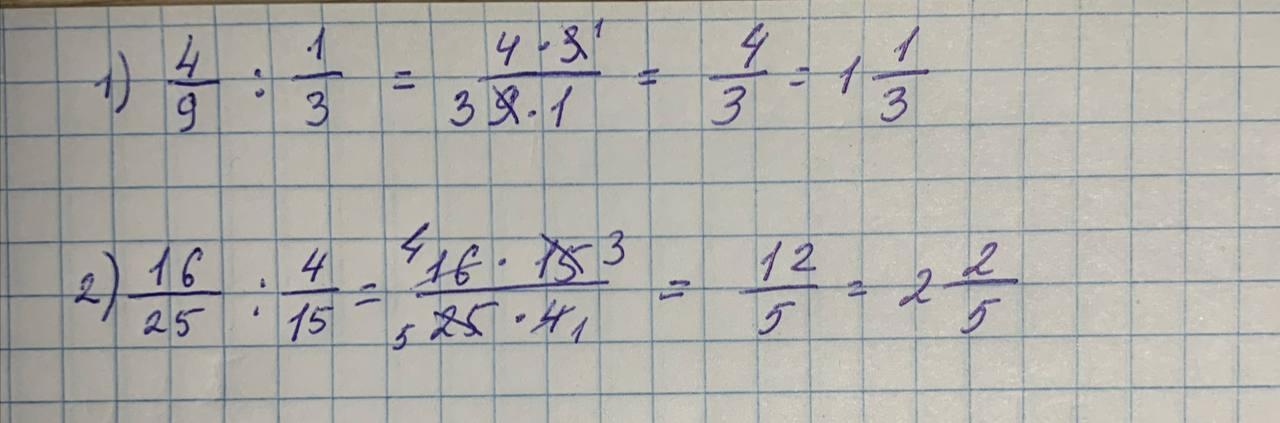 1) 4/9 : 1/3 = 4 · 3 1 / 3 9 · 1 = 4/3 = 1 1/3
2) 16/25 : 4/15 = 4 16 · 15 3 / 5 25 · 4 1 = 12/5 = 2 2/5